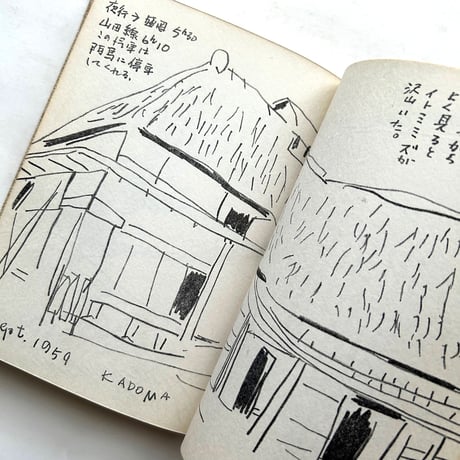 夜行→盛岡 5h30
山田線6h10
この汽車は
陌馬に停車
してくれる。
ept. 1959
KADOMA
よく見ると
イトミミズが
沢山いた。